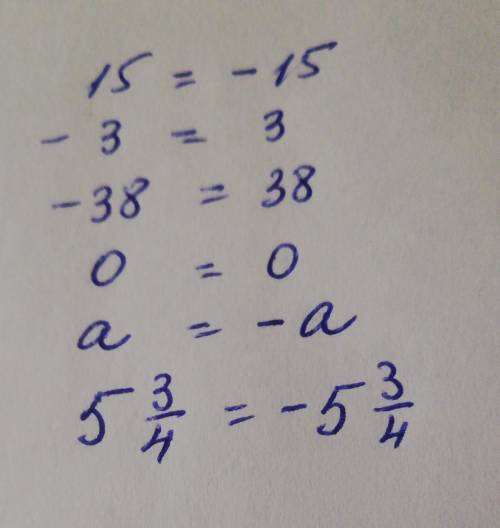 15 = -15
-3 = 3
-38 = 38
0 = 0
a = -a
5 3/4 = -5 3/4